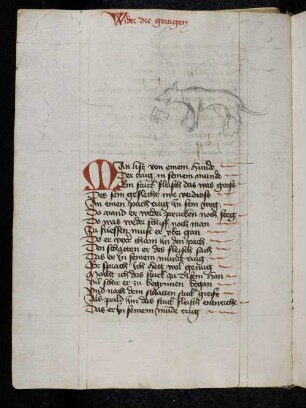 Wider die geitigen
Man list von einem hunde
Der trug in seinem munde
Ein stuck fleisch das was groß
Des sein geslecht nye verdroß
An einen pach trug in sein weg
Do vand er weder prucken noch steg
Do was weder schiff noch man
Zu fuessen must er vber gan
Do er vber cham in den pach
Den schatten er des fleisch sach
Das er in seinem munde trug
Er sprach ich hett wol genug
Mocht ich das stuck zu disem han
Vil schir er zu begynnen began
Vnd nach dem schatten stuck greiff
Als pald im das stuck fleisch entweich
Das er in seinem munde trug